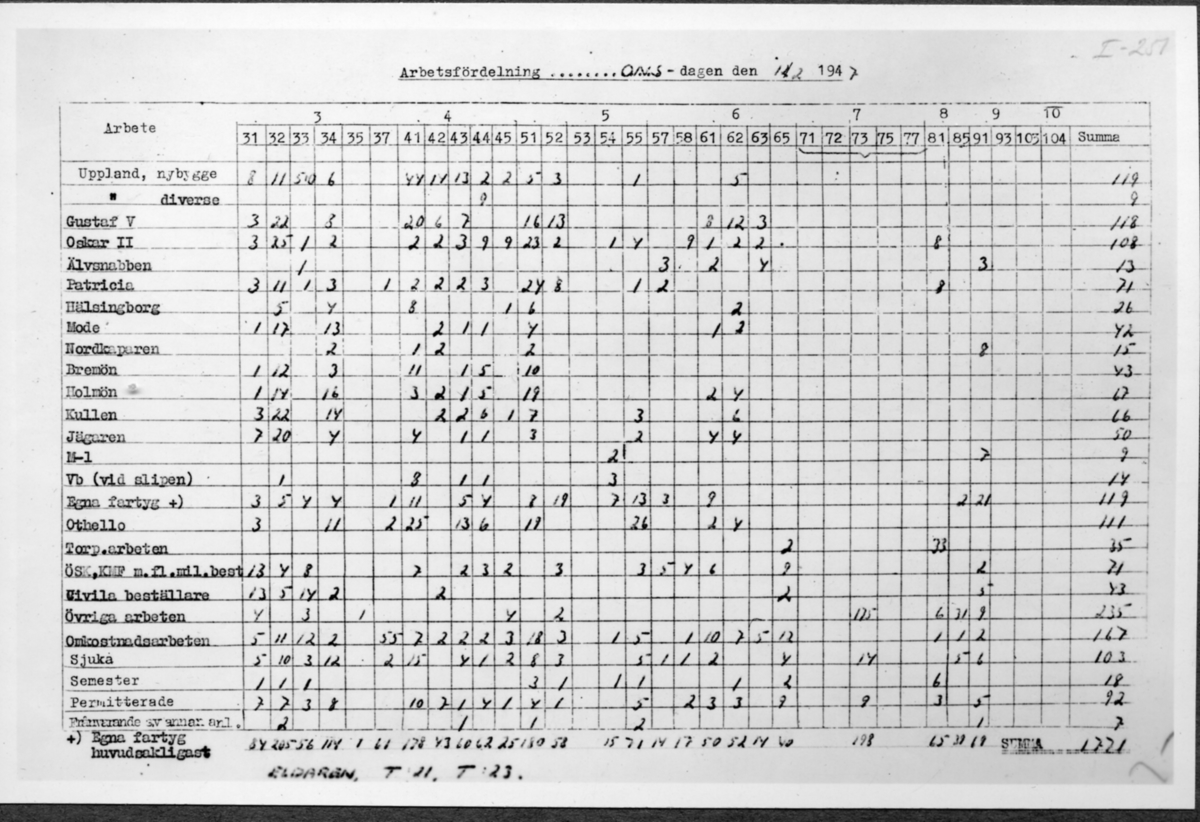 I-251
Arbetsfördelning ........ ONS - dagen den 1947
3 4 5 6 7 8 9 10
Arbete 31 32 33 34 35 37 41 42 43 44 45 51 52 53 54 55 57 58 61 62 63 65 71 72 73 75 77 81 85 91 93 103 104 Summa
Uppland, nybygge 8 11 6 44 14 13 2 2 5 3 1 5 119
" diverse 9 9
Gustaf V 3 22 8 20 6 7 16 13 8 12 3 118
Oskar II 3 25 1 2 2 2 3 9 9 23 2 1 4 9 1 2 2 8 108
Älvsnabben 1 3 2 4 3 13
Patricia 3 11 1 3 1 2 2 2 3 24 8 1 2 8 71
Hälsingborg 5 4 8 1 6 2 26
Mode 1 17 13 2 1 1 4 1 2 42
Nordkaparen 2 1 2 2 8 15
Bremön 1 12 3 11 1 5 10 43
Holmön 1 14 16 3 2 1 5 19 2 4 67
Kullen 3 22 14 2 2 6 1 7 3 6 66
Jägaren 7 20 4 4 1 1 3 2 4 4 50
M-1 2 7 9
Vb (vid slipen) 1 8 1 1 3 14
Egna fartyg +) 3 5 4 4 1 11 5 4 8 19 7 13 3 9 2 21 119
Othello 3 11 2 25 13 6 19 26 2 4 111
Torp.arbeten 2 33 35
ÖSK,KMF m.fl.mil.best 13 4 8 7 2 3 2 3 3 5 4 6 9 2 71
Civila beställare 13 5 14 2 2 2 5 43
Övriga arbeten 4 3 1 4 2 175 6 31 9 235
Omkostnadsarbeten 5 11 12 2 55 7 2 2 2 3 18 3 1 5 1 10 7 5 12 1 1 2 167
Sjuka 5 10 3 12 2 15 4 1 2 8 3 5 1 1 2 4 14 5 6 103
Semester 1 1 1 3 1 1 1 1 2 6 18
Permitterade 7 7 3 8 10 7 1 4 1 4 1 5 2 3 3 9 9 3 5 92
Frånvarande av annan anl. 2 1 1 2 1 7
+) Egna fartyg 84 205 56 114 1 61 178 43 60 62 25 180 58 15 71 14 17 50 52 14 40 198 65 39 69 SUMMA 1721
huvudsakligast
ELDAREN, T 21, T 23.